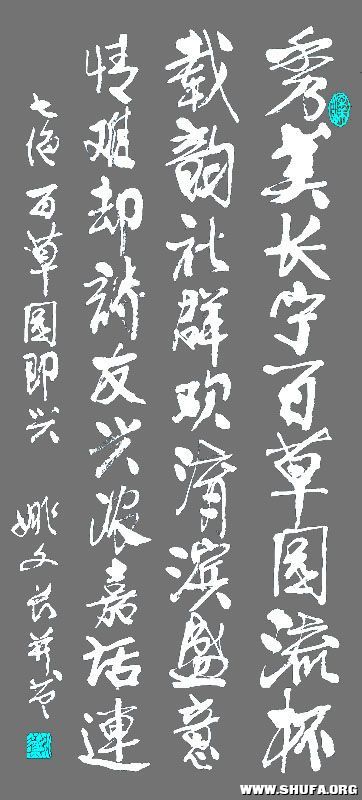 秀美长宁百草园流杯
载韵社群欢淯滨盛意
情难却詩友兴浓嘉话連
七绝 百草园即兴 姚文长并
WWW.SHUFA.ORG